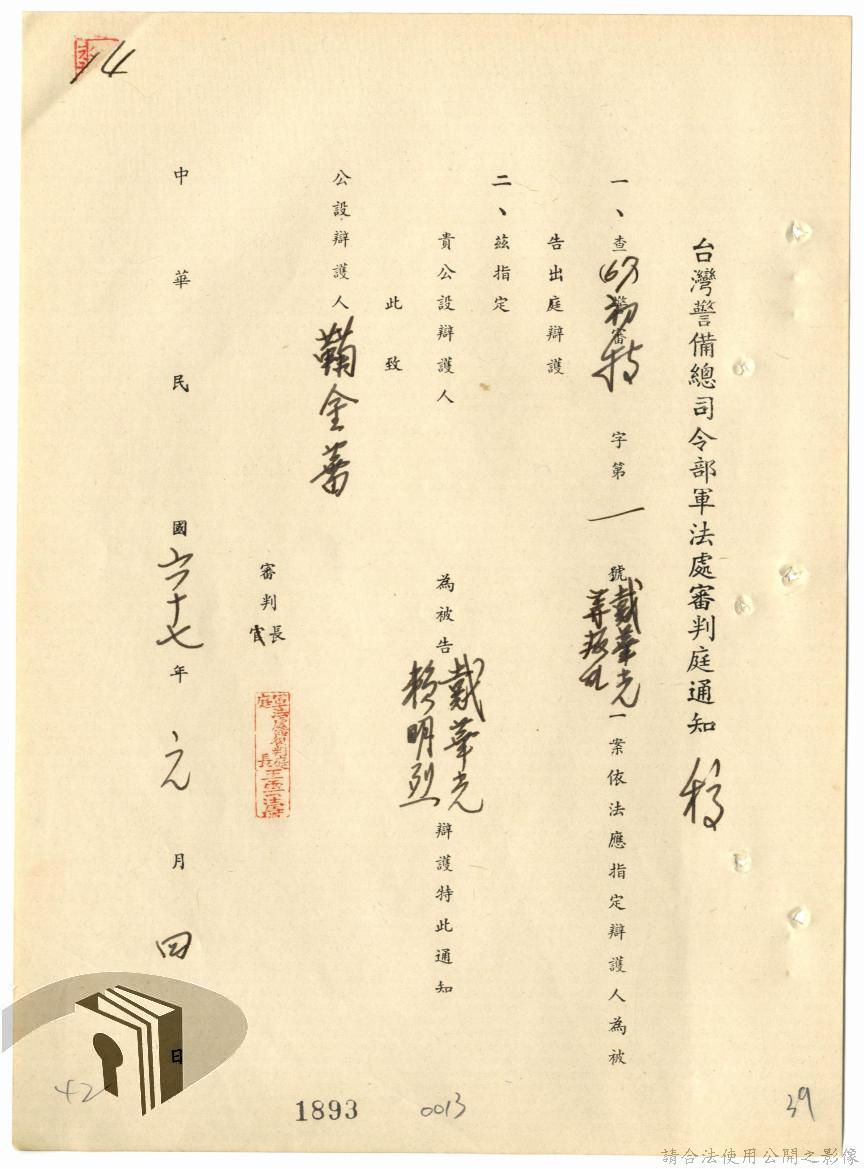 台灣警備總司令部軍法處審判庭通知 稿
一、查(67)初審特字第一號戴華光等叛亂一案依法應指定辯護人為被
告出庭辯護
二、茲指定
貴公設辯護人為被告戴華光
賴明烈
辯護特此通知
此致
公設辯護人鞠金蕃
審判長
官
中華民國六十七年元月四日
14
42
1893
0013
39
請合法使用公開之影像